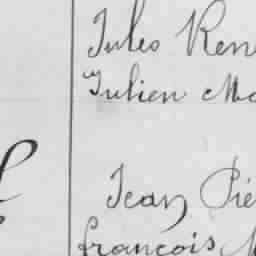 Jules Ren
Julien Ma
Jean Pie
françois M